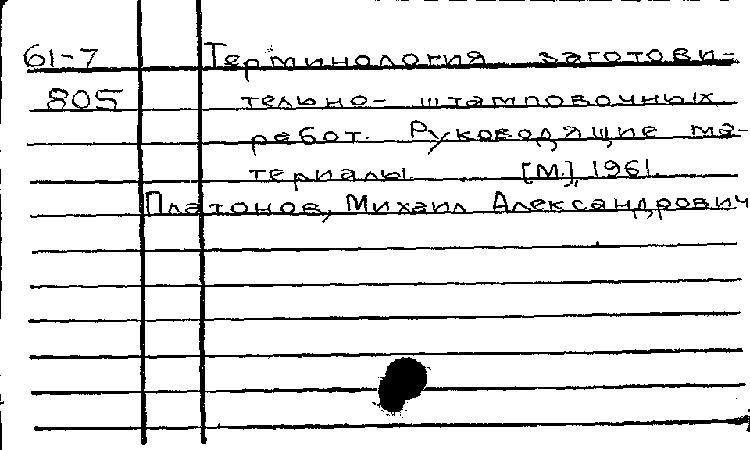 61-7 Терминология заготови-
805 тельно- штамповочных
работ. Руководящие ма-
териалы. [М.], 1961.
Платонов, Михаил Александрович